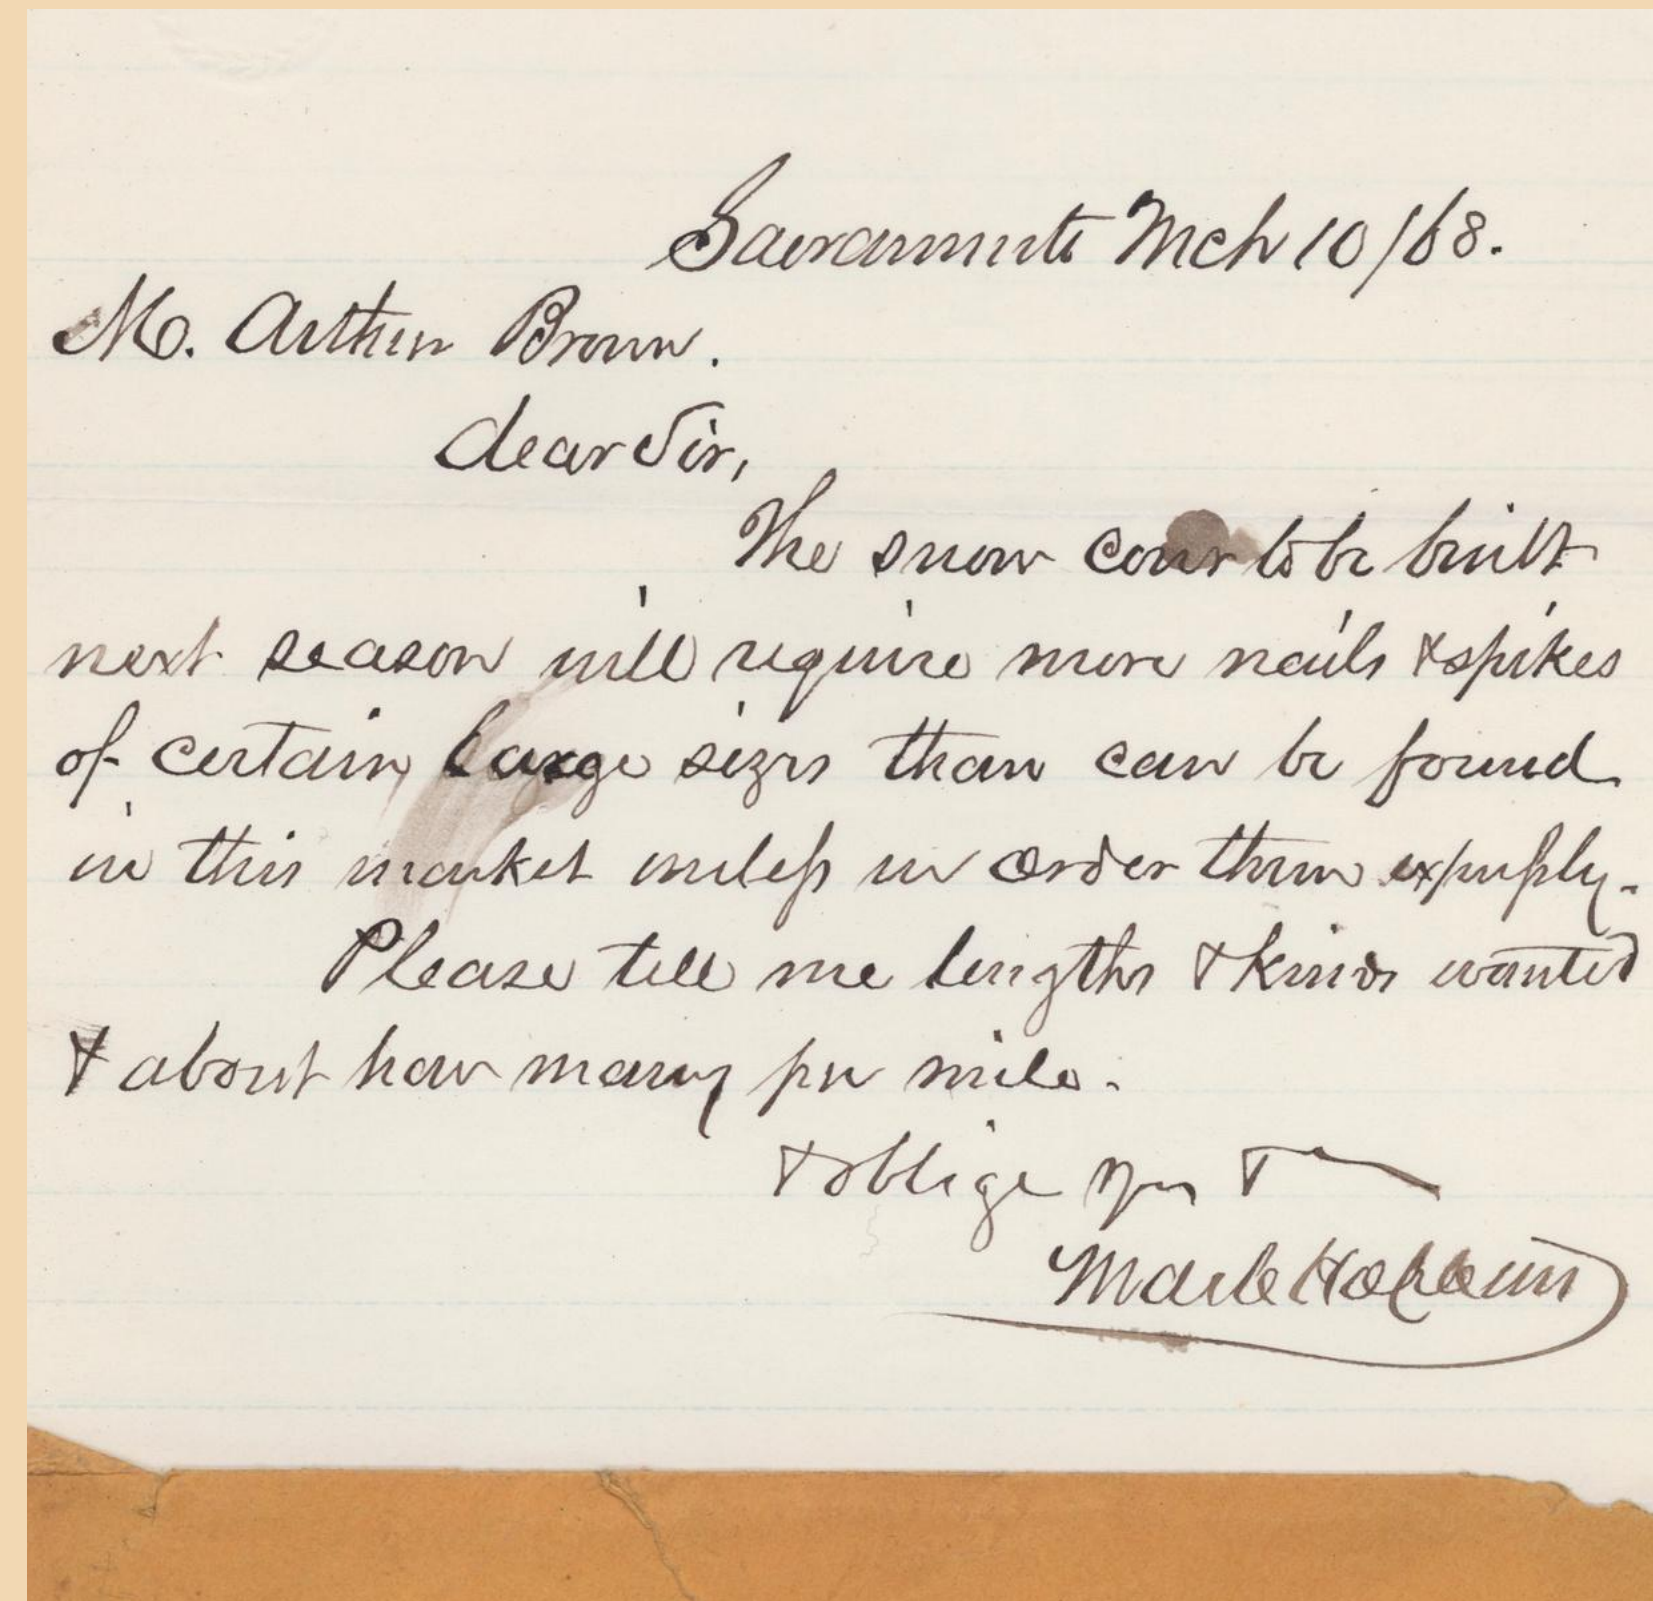 Sacramento Mch 10/68.
M. Arthur Brown.
Dear Sir,
The snow cover to be built
next season will require more nails & spikes
of certain large sizes than can be found
in this market unless we order them expressly.
Please tell me lengths & kinds wanted
& about how many per mile.
& oblige yrs &
Mark Hopkins